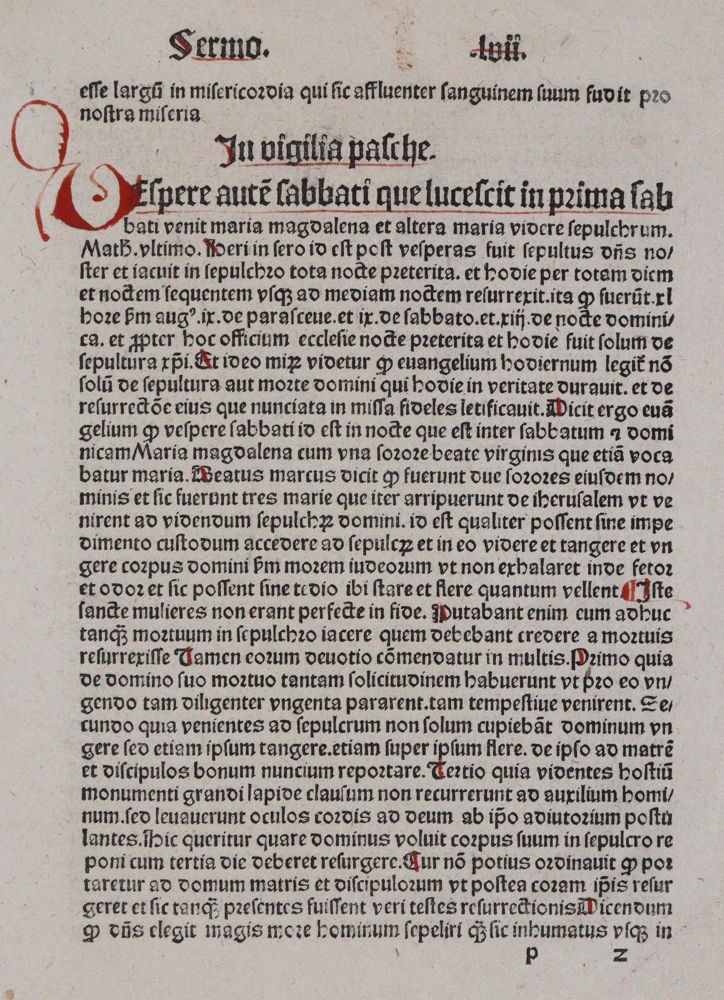 Sermo. .lvii.
esse largū in misericordia qui sic affluenter sanguinem suum fudit pro
nostra miseria
In vigilia pasche.
VEspere autē sabbati que lucescit in prima sab
bati venit maria magdalena et altera maria videre sepulchrum.
Math. vltimo. Heri in sero id est post vesperas fuit sepultus dn̄s no/
ster et iacuit in sepulchro tota nocte preterita. et hodie per totam diem
et noctem sequentem vsqꝫ ad mediam noctem resurrexit. ita ꝙ fuerūt. xl
hore ẜm augꝰ. ix. de parasceue. et ix. de sabbato. et. xiij. de nocte domini/
ca. et ꝓpter hoc officium ecclesie nocte preterita et hodie fuit solum de
sepultura xp̄i. Et ideo miꝝ videtur ꝙ euangelium hodiernum legit̄ nō
solū de sepultura aut morte domini qui hodie in veritate durauit. et de
resurrectōe eius que nunciata in missa fideles letificauit. Dicit ergo euā
gelium ꝙ vespere sabbati id est in nocte que est inter sabbatum ⁊ domi
nicam Maria magdalena cum vna sorore beate virginis que etiā voca
batur maria. Beatus marcus dicit ꝙ fuerunt due sorores eiusdem no/
minis et sic fuerunt tres marie que iter arripuerunt de iherusalem vt ve
nirent ad videndum sepulchꝝ domini. id est qualiter possent sine impe
dimento custodum accedere ad sepulcꝝ et in eo videre et tangere et vn
gere corpus domini ẜm morem iudeorum vt non exhalaret inde fetor
et odor et sic possent sine tedio ibi stare et flere quantum vellent ¶ Iste
sancte mulieres non erant perfecte in fide. Putabant enim cum adhuc
tanqꝫ̄ mortuum in sepulchro iacere quem debebant credere a mortuis
resurrexisse Tamen eorum deuotio cōmendatur in multis. Primo quia
de domino suo mortuo tantam solicitudinem habuerunt vt pro eo vn/
gendo tam diligenter vngenta pararent. tam tempestiue venirent. Se/
cundo quia venientes ad sepulcrum non solum cupiebāt dominum vn
gere sed etiam ipsum tangere. etiam super ipsum flere. de ipso ad matrē
et discipulos bonum nuncium reportare. Tertio quia videntes hostiū
monumenti grandi lapide clausum non recurrerunt ad auxilium homi/
num. sed leuauerunt oculos cordis ad deum ab ip̄o adiutorium postu
lantes. Hic queritur quare dominus voluit corpus suum in sepulcro re
poni cum tertia die deberet resurgere. Cur nō potius ordinauit ꝙ por
taretur ad domum matris et discipulorum vt postea coram ip̄is resur
geret et sic tanqꝫ̄ presentes fuissent veri testes resurrectionis Dicendum
ꝙ dn̄s elegit magis more hominum sepeliri qꝫ̄ sic inhumatus vsqꝫ in
p 2